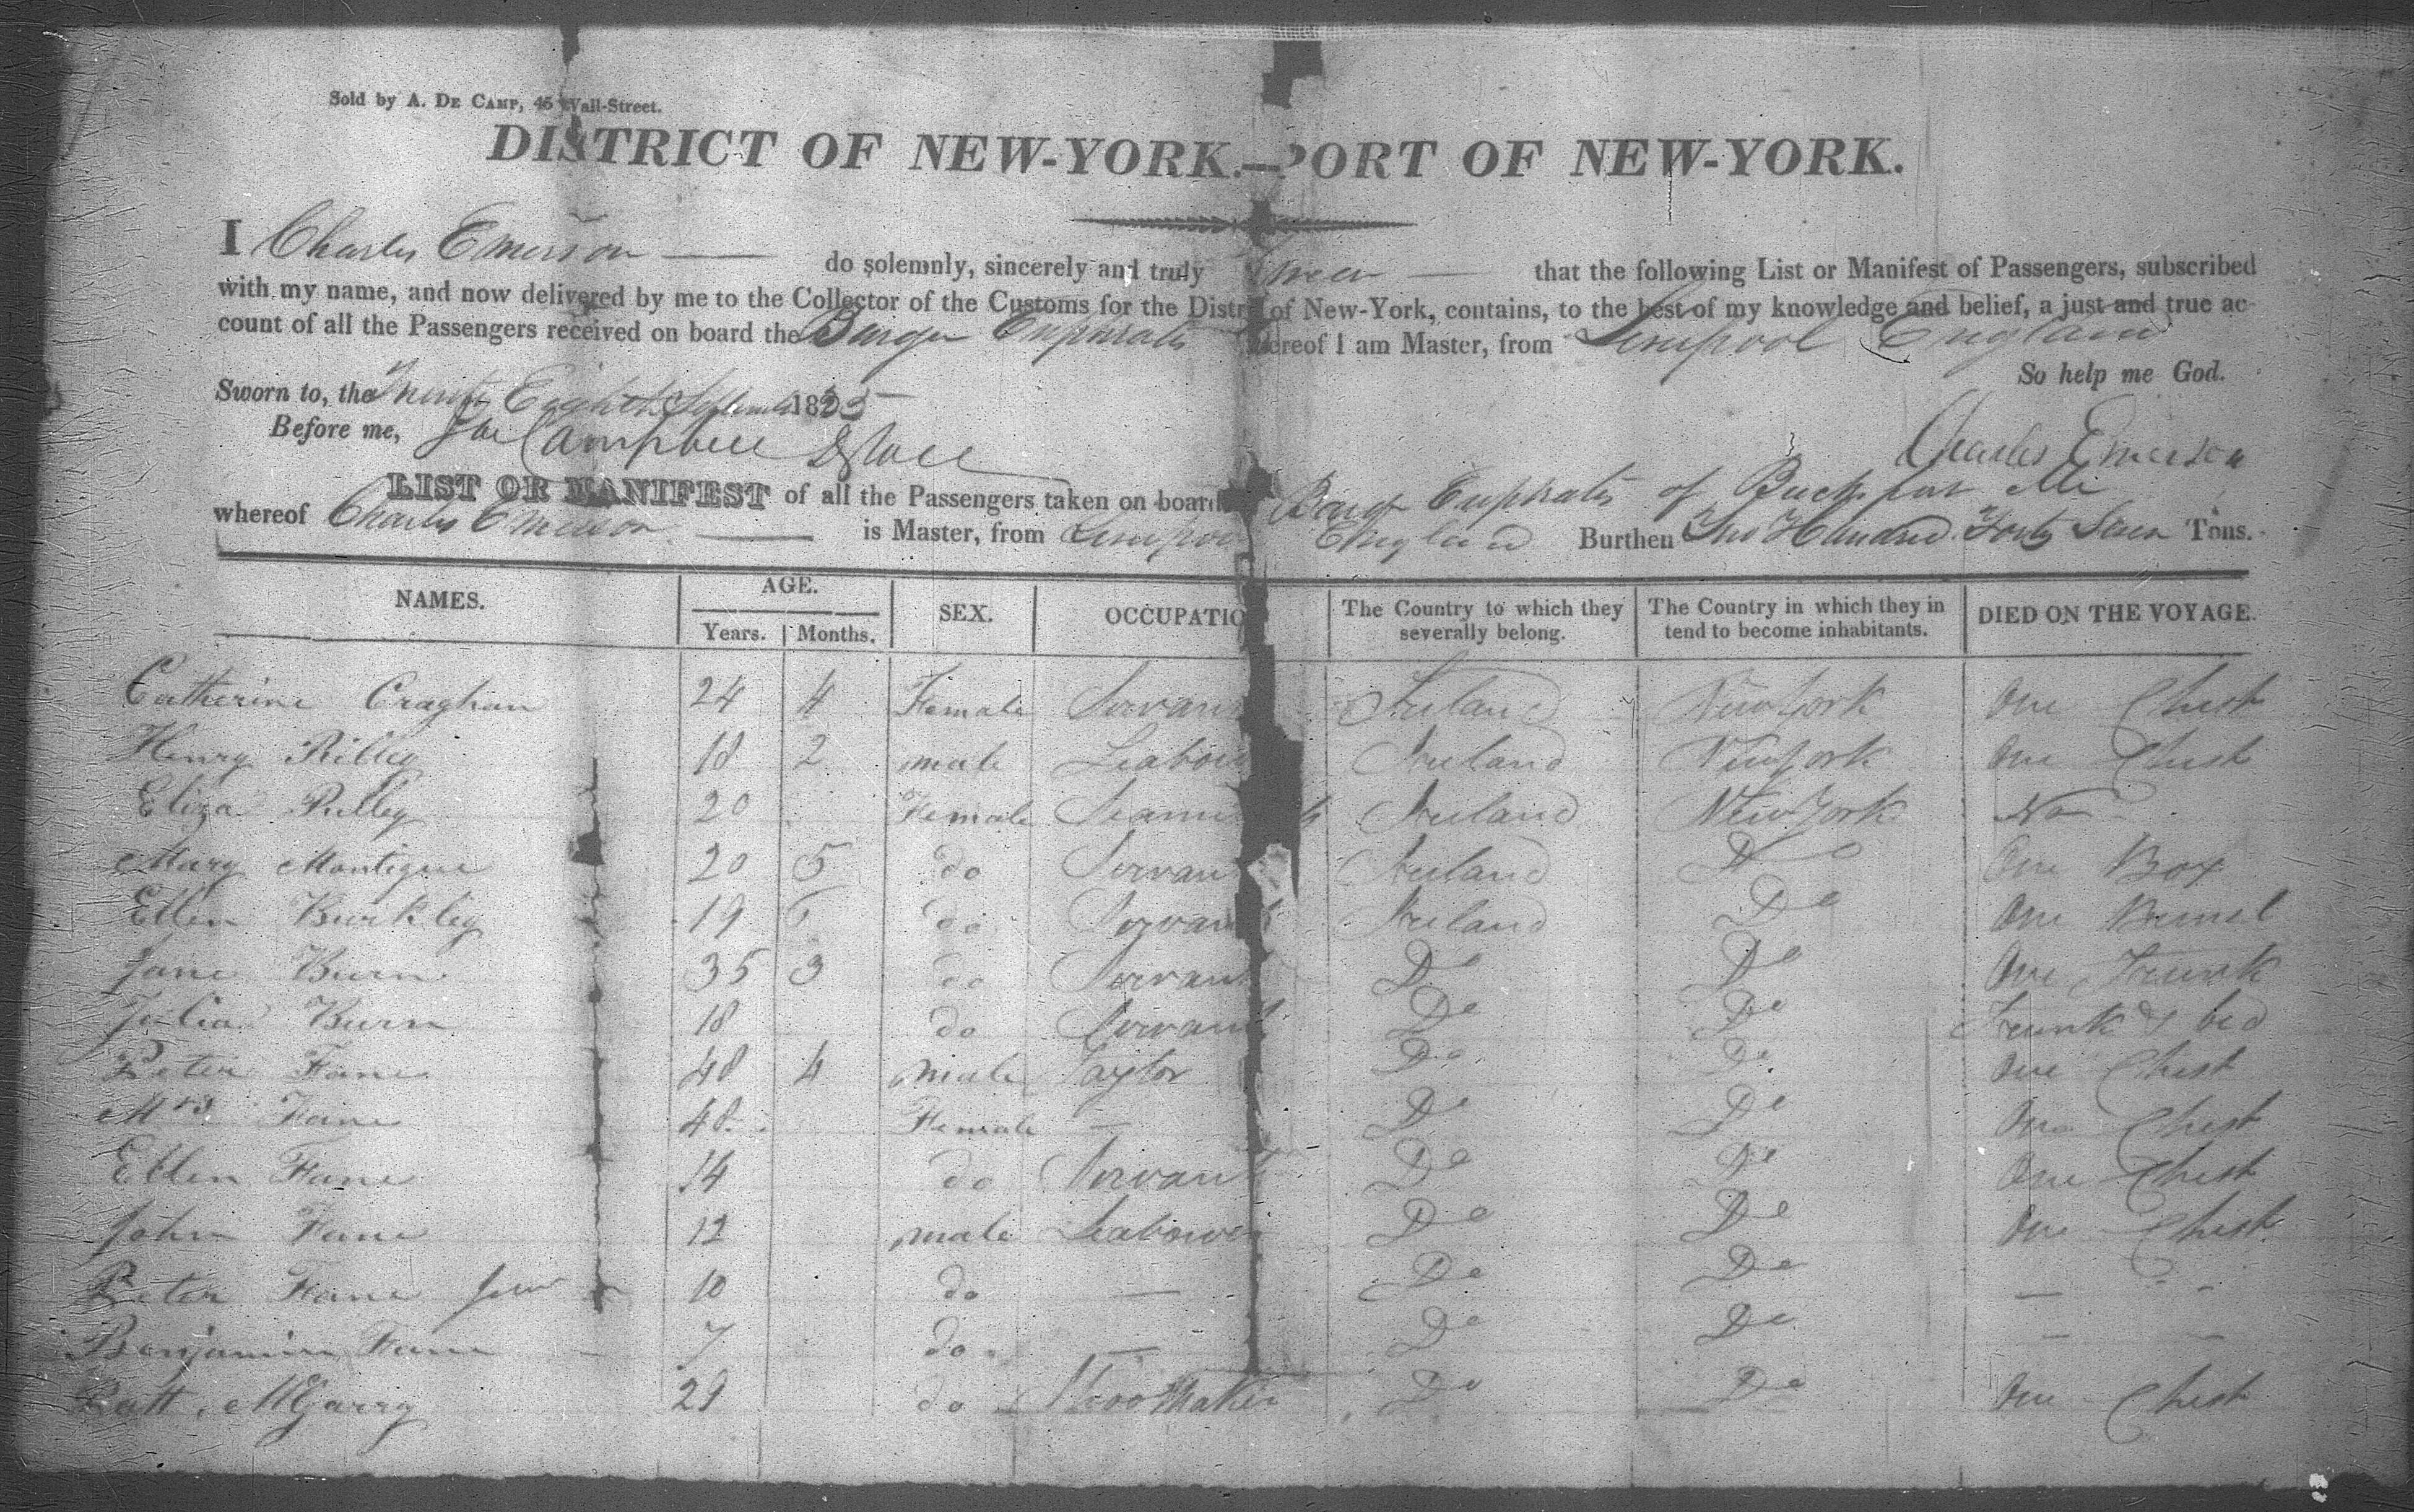 Sold by A. DE CAMP, 45 Wall-Street.
DISTRICT OF NEW-YORK.—PORT OF NEW-YORK.
I Charles Emerson — do solemnly, sincerely and truly Swear — that the following List or Manifest of Passengers, subscribed
with my name, and now delivered by me to the Collector of the Customs for the District of New-York, contains, to the best of my knowledge and belief, a just and true ac-
count of all the Passengers received on board the Barque Euphrates whereof I am Master, from Liverpool England
So help me God.
Sworn to, the Twenty Eighth September 1835
Before me, Campbell
Charles Emerson
LIST OR MANIFEST of all the Passengers taken on board Barque Euphrates of Bucksport Me
whereof Charles Emerson — is Master, from Liverpool England Burthen Two Hundred Forty Seven Tons.
NAMES. AGE. SEX. OCCUPATIO The Country to which they severally belong. The Country in which they in tend to become inhabitants. DIED ON THE VOYAGE.
Years. Months.
Catherine Craghan 24 4 Female Servan Ireland New York One Chest
Henry Rilley 18 2 male Leabou Ireland New York One Chest
Eliza Rilley 20 Female Ireland New York No
Mary Montigue 20 5 do Servan Ireland Do One Box
Ellen Burkley 19 do Servan Ireland Do One
Jane Burn 35 3 do Servant Do Do One Trunk
Julia Burn 18 do Servant Do Do Trunk & bed
Peter Fane 48 4 male Taylor Do Do One Chest
Mrs Fane 48 Female — Do Do One Chest
Ellen Fane 14 do Servant Do Do One Chest
John Fane 12 male Leabower Do Do One Chest
Peter Fane Junr 10 do — Do Do — -
Benjamin Fane 7 do — Do Do — -
Patt. McGarry 29 do Shoo Maker Do Do One Chest